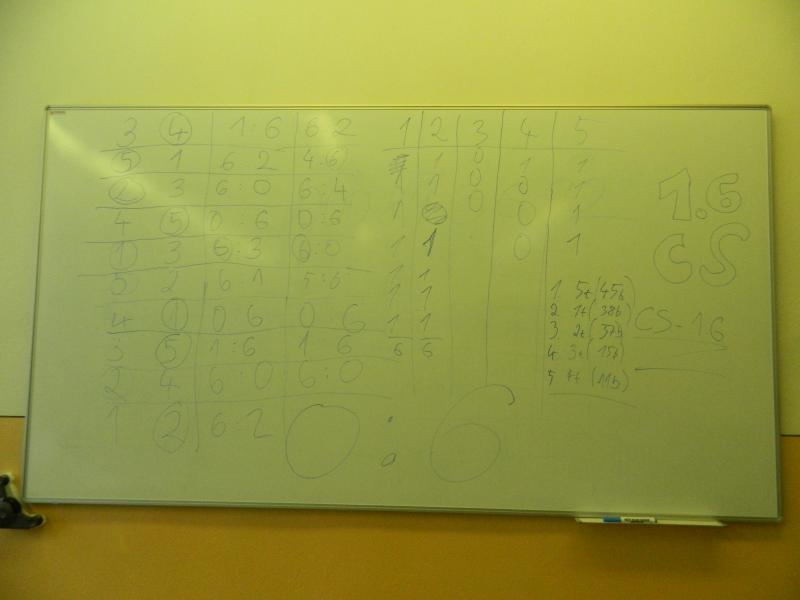 3 4 1:6 6 2
5 1 6 2 4:6
2 3 6:0 6:4
4 5 0:6 0:6
1 3 6:3 6:0
5 2 6:1 5:6
4 1 0 6 0:6
3 5 1:6 1 6
2 4 6:0 6:0
1 2 6:2 0:6
1 2 3 4 5
1 0 1 1
1 1 0 0 1
1 0 0 1
1 1 0 1
1 1
1 1
1 1
6 6
1. 5t (45b)
2. 1t (38b)
3. 2t (37b)
4. 3t (15b)
5 4t (11b)
1.6
CS
CS-16